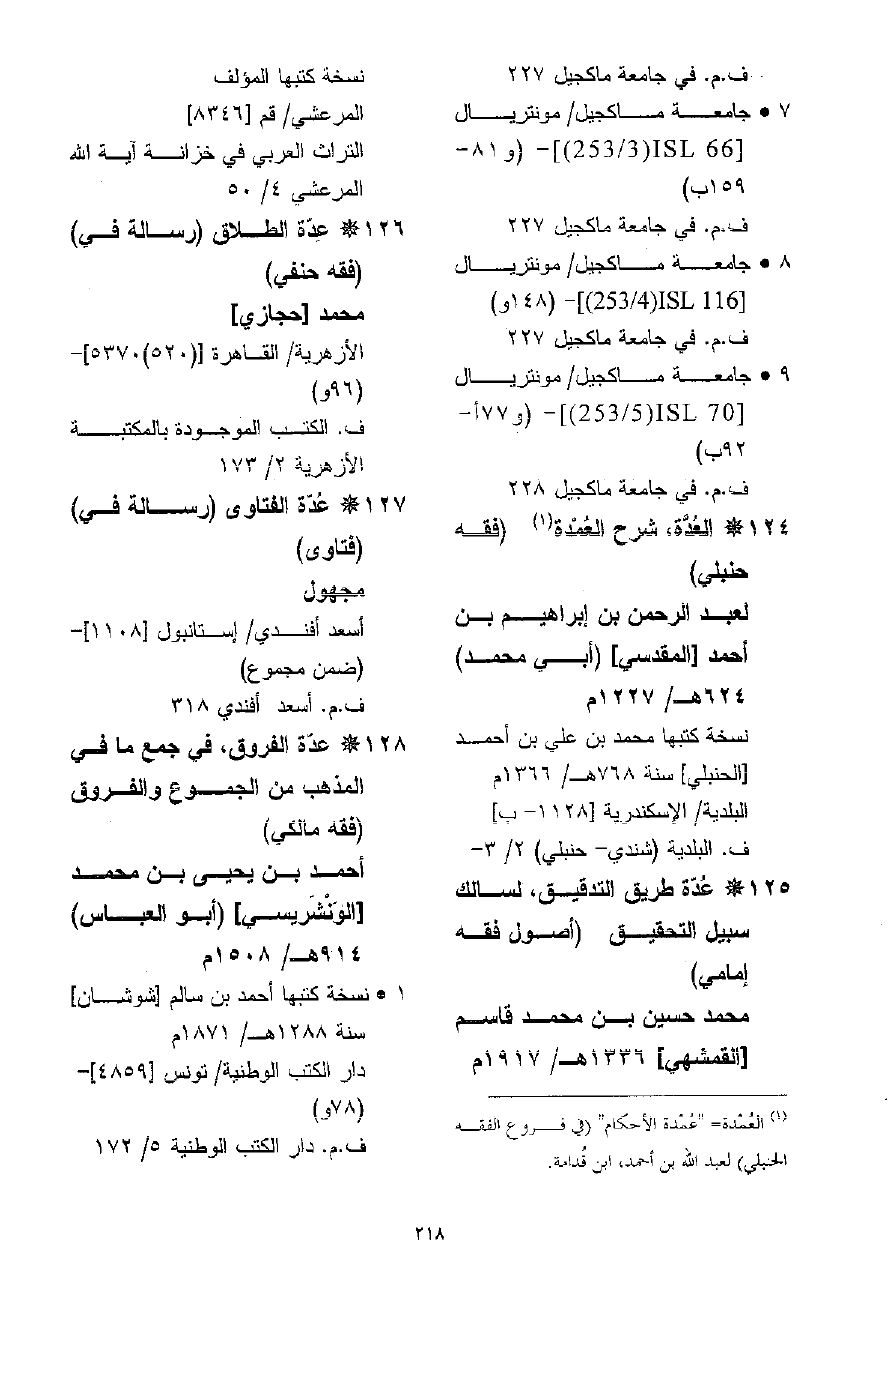 ف.م. في جامعة ماكجيل ٢٢٧
٧ • جامعة ماكجيل/ مونتريال
[253/3)ISL 66)]- (و٨١-
١٥٩ب)
ف.م. في جامعة ماكجيل ٢٢٧
٨ • جامعة ماكجيل/ مونتريال
[253/4)ISL 116)]- (١٤٨و)
ف.م. في جامعة ماكجيل ٢٢٧
٩ • جامعة ماكجيل/ مونتريال
[253/5)ISL 70)]- (و٧٧أ-
٩٢ب)
ف.م. في جامعة ماكجيل ٢٢٨
١٢٤ ❋ العُدَّة، شرح العُمْدة(١) (فقه
حنبلي)
لعبد الرحمن بن إبراهيم بن
أحمد [المقدسي] (أبي محمد)
٦٢٤هـ/ ١٢٢٧م
نسخة كتبها محمد بن علي بن أحمد
[الحنبلي] سنة ٧٦٨هـ/ ١٣٦٦م
البلدية/ الإسكندرية [١١٢٨- ب]
ف. البلدية (شندي- حنبلي) ٢/ ٣-
١٢٥ ❋ عُدّة طريق التدقيق، لسالك
سبيل التحقيق (أصول فقه
إمامي)
محمد حسين بن محمد قاسم
[القمشهي] ١٣٣٦هـ/ ١٩١٧م
(١) العُمْدة= "عُمْدة الأحكام" (في فروع الفقه
الحنبلي) لعبد الله بن أحمد، ابن قُدامة.
نسخة كتبها المؤلف
المرعشي/ قم [٨٣٤٦]
التراث العربي في خزانة آية الله
المرعشي ٤/ ٥٠
١٢٦ ❋ عِدّة الطلاق (رسالة في)
(فقه حنفي)
محمد [حجازي]
الأزهرية/ القاهرة [(٥٢٠)٥٣٧٠]-
(٩٦و)
ف. الكتب الموجودة بالمكتبة
الأزهرية ٢/ ١٧٣
١٢٧ ❋ عُدّة الفتاوى (رسالة في)
(فتاوى)
مجهول
أسعد أفندي/ إستانبول [١١٠٨]-
(ضمن مجموع)
ف.م. أسعد أفندي ٣١٨
١٢٨ ❋ عدّة الفروق، في جمع ما في
المذهب من الجموع والفروق
(فقه مالكي)
أحمد بن يحيى بن محمد
[الوَنْشَريسي] (أبو العباس)
٩١٤هـ/ ١٥٠٨م
١ • نسخة كتبها أحمد بن سالم [شوشان]
سنة ١٢٨٨هـ/ ١٨٧١م
دار الكتب الوطنية/ تونس [٤٨٥٩]-
(٧٨و)
ف.م. دار الكتب الوطنية ٥/ ١٧٢
٢١٨